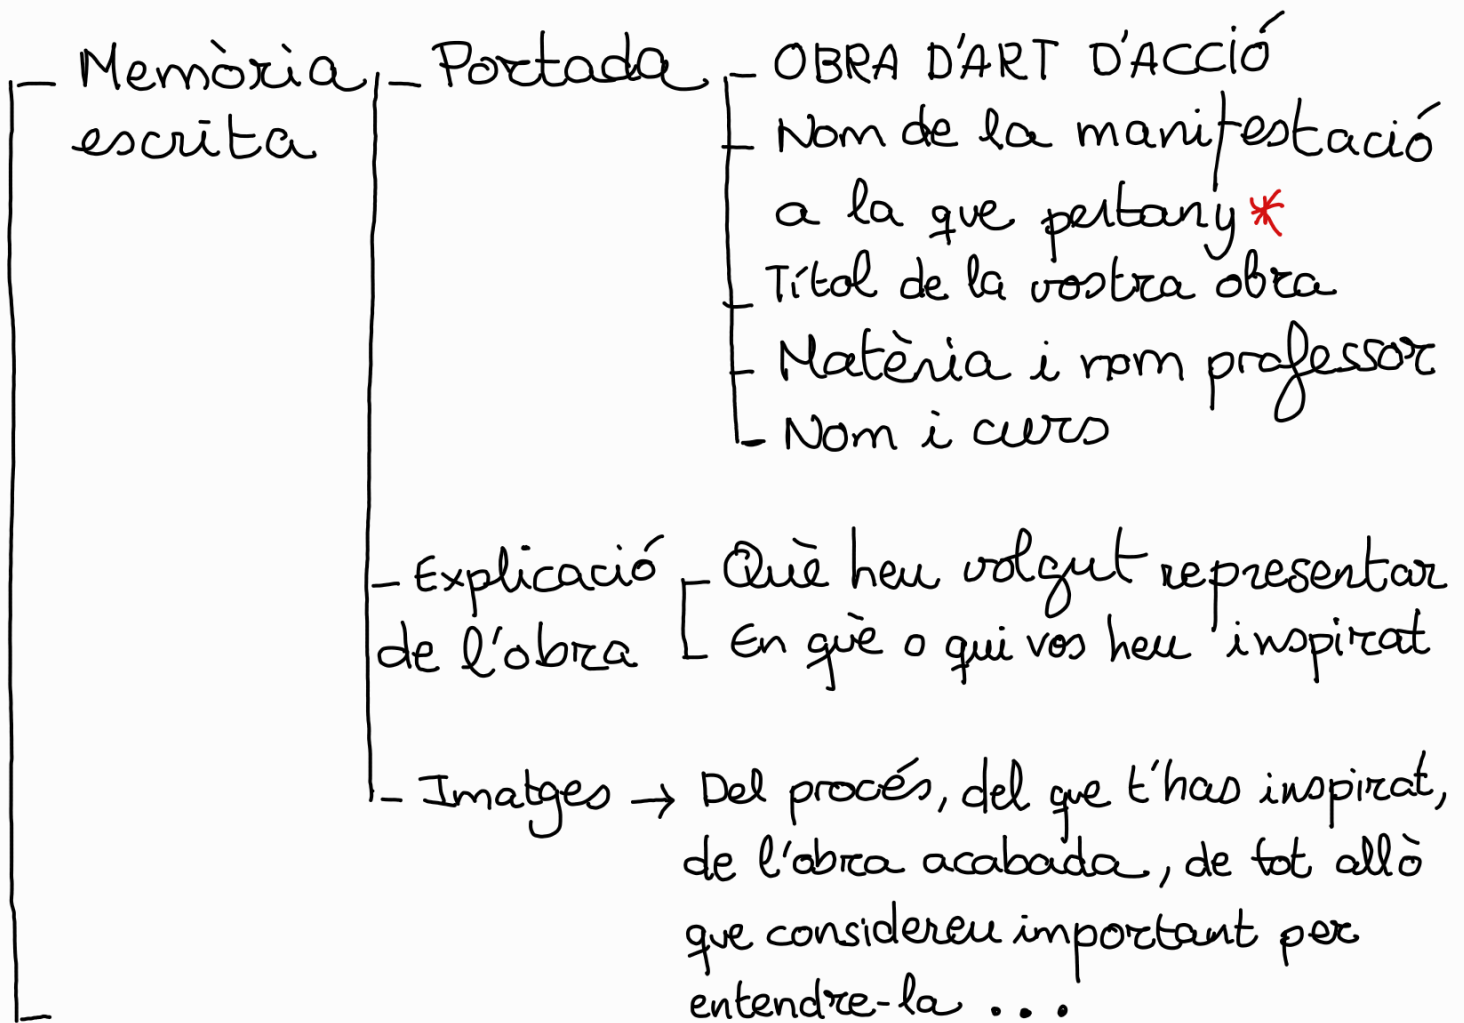 - Memòria
escrita
- Portada
- OBRA D'ART D'ACCIÓ
- Nom de la manifestació
a la que pertany *
- Títol de la vostra obra
- Matèria i nom professor
- Nom i curs
- Explicació
de l'obra
- Què heu volgut representar
- En què o qui vos heu inspirat
- Imatges → Del procés, del que t'has inspirat,
de l'obra acabada, de tot allò
que considereu important per
entendre-la ...